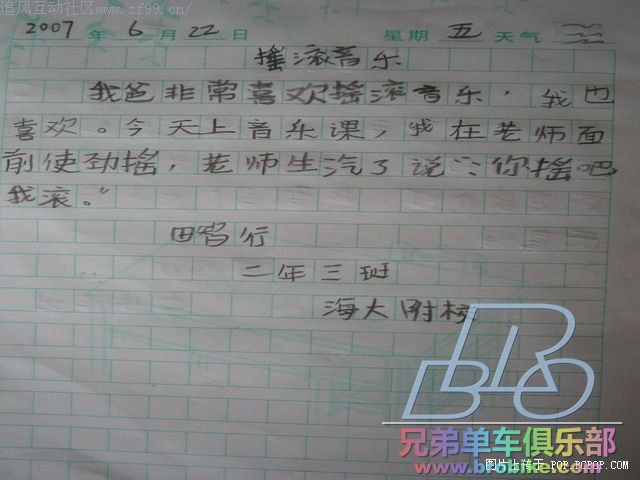 追风互动社区 www.zf99.cn/
2007 年 6 月 22 日 星期 五 天气
摇滚音乐
我爸非常喜欢摇滚音乐，我也
喜欢。今天上音乐课，我在老师面
前使劲摇，老师生汽了说：“你摇吧
我滚。”
田 行
二年三班
海大附校
BRO
兄弟单车俱乐部
www.brobike.com
图片上传于 POP.PCPOP.COM